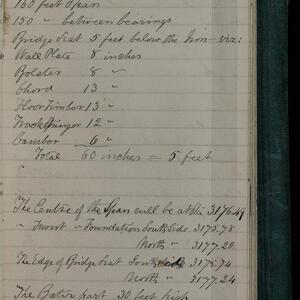 160 feet Span
150 " between bearings
Bridge Seat 5 feet below the Iron - viz:
Wall Plate 8 inches
Bolster 8 "
Chord 13 "
Floor Timber 13 "
Track Stringer 12 "
Camber 6 "
Total 60 inches = 5 feet
The Centre of the Span will be at Sta 3176.49
" Front " Foundation South Side 3175.78
North " 3177.20
The Edge of Bridge Seat South Side 3175.74
North " 3177.24
The Batir part 30 feet high